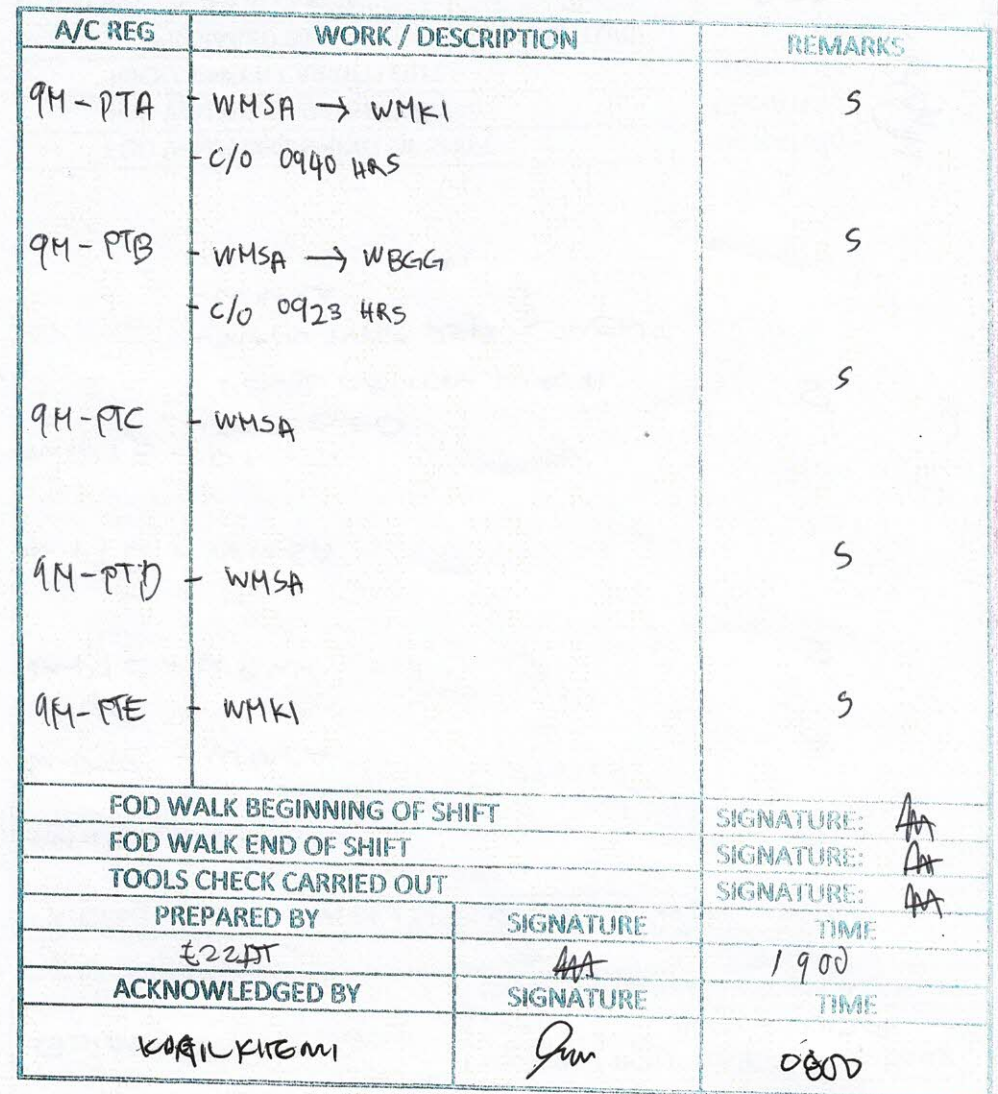 A/C REG WORK / DESCRIPTION REMARKS
9M-PTA - WMSA → WMKI S
- C/O 0940 HRS
9M-PTB - WMSA → WBGG S
- C/O 0923 HRS
9M-PTC - WMSA S
9M-PTD - WMSA S
9M-PTE - WMKI S
FOD WALK BEGINNING OF SHIFT SIGNATURE:
FOD WALK END OF SHIFT SIGNATURE:
TOOLS CHECK CARRIED OUT SIGNATURE:
PREPARED BY SIGNATURE TIME
1900
ACKNOWLEDGED BY SIGNATURE TIME
0800